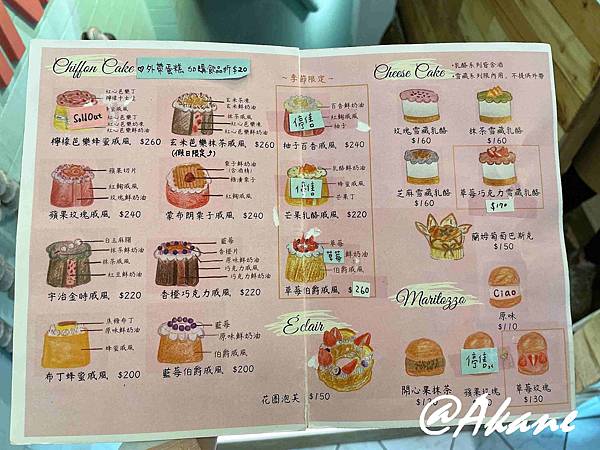 Chiffon Cake ♡外帶蛋糕 加購飲品折$20
紅心芭樂丁
檸檬卡士達
Sold Out
蜂蜜戚風
紅心芭樂凍
紅心芭樂鮮奶油
檸檬芭樂蜂蜜戚風 $260
玄米茶凍
玄米鮮奶油
抹茶戚風
紅心芭樂凍
紅心芭樂鮮奶油
玄米芭樂抹茶戚風 $260
(假日限定♪)
蘋果切片
紅麴戚風
玫瑰鮮奶油
蘋果玫瑰戚風 $240
栗子鮮奶油
(含酒精)
糖漬栗子
紅麴戚風
蒙布朗栗子戚風 $240
白玉麻糬
抹茶鮮奶油
抹茶戚風
紅豆鮮奶油
宇治金時戚風 $220
藍莓
香橙片
原味鮮奶油
巧克力戚風
巧克力鮮奶油
香橙巧克力戚風 $220
焦糖布丁
原味鮮奶油
蜂蜜戚風
布丁蜂蜜戚風 $200
藍莓
原味鮮奶油
伯爵戚風
藍莓伯爵戚風 $200
~季節限定~
百香鮮奶油
紅麴戚風
柚子
停售
柚子百香戚風 $240
乳酪鮮奶油
蜂蜜戚風
芒果丁
停售
芒果乳酪戚風 $220
草莓
草莓鮮奶油
伯爵戚風
草莓伯爵戚風 $260
Éclair
花圈泡芙 $150
Cheese Cake
•乳酪系列皆含酒
•雪藏系列限內用，不提供外帶
玫瑰雪藏乳酪
$160
抹茶雪藏乳酪
$160
芝麻雪藏乳酪
$160
草莓巧克力雪藏乳酪
$170
蘭姆葡萄巴斯克
$150
Maritozzo
Ciao
原味
$110
開心果抹茶
停售
蘋果玫瑰
草莓玫瑰
$130
@Akane